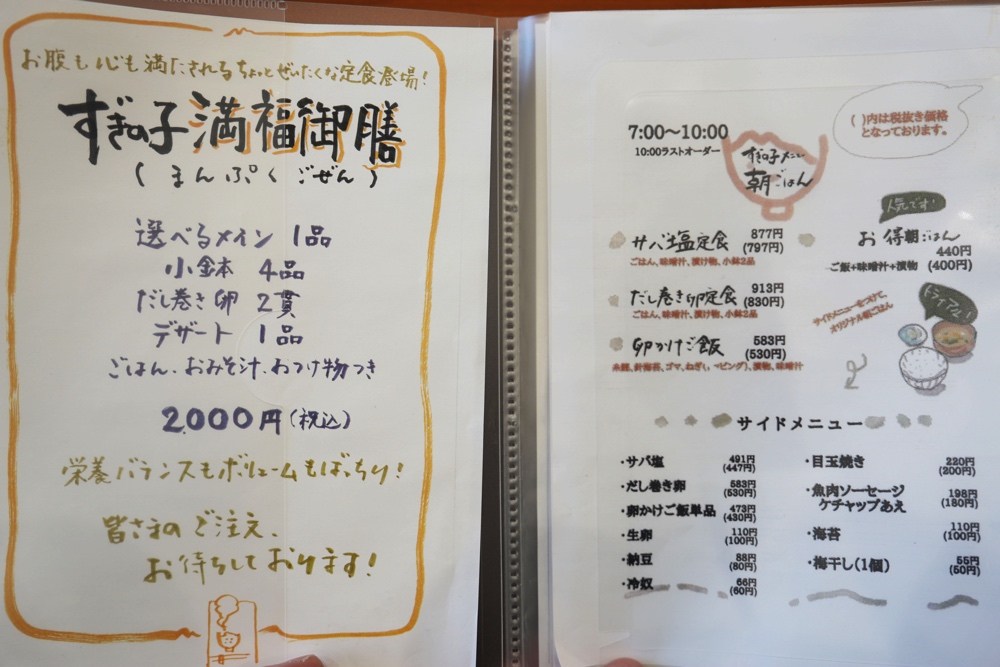 お腹も心も満たされるちょっとぜいたくな定食登場!
すぎの子満福御膳
(まんぷくごぜん)
選べるメイン 1品
小鉢 4品
だし巻き卵 2貫
デザート 1品
ごはん、おみそ汁、おつけ物つき
2,000円(税込)
栄養バランスもボリュームもばっちり!
皆さまのご注文、
お待ちしております!
7:00〜10:00
10:00ラストオーダー
( )内は税抜き価格
となっております。
すぎの子メニュー
朝ごはん
サバ塩定食 877円
(797円)
ごはん、味噌汁、漬け物、小鉢2品
だし巻き卵定食 913円
(830円)
ごはん、味噌汁、漬け物、小鉢2品
卵かけご飯 583円
(530円)
人気です!
お得朝ごはん
440円
ご飯+味噌汁+漬物 (400円)
サイドメニューをつけて、
オリジナル朝ごはん
トライアル!
サイドメニュー
・サバ塩 491円
(447円)
・だし巻き卵 583円
(530円)
・卵かけご飯単品 473円
(430円)
・生卵 110円
(100円)
・納豆 88円
(80円)
・冷奴 66円
(60円)
・目玉焼き 220円
(200円)
・魚肉ソーセージ 198円
ケチャップあえ (180円)
・海苔 110円
(100円)
・梅干し(1個) 55円
(50円)